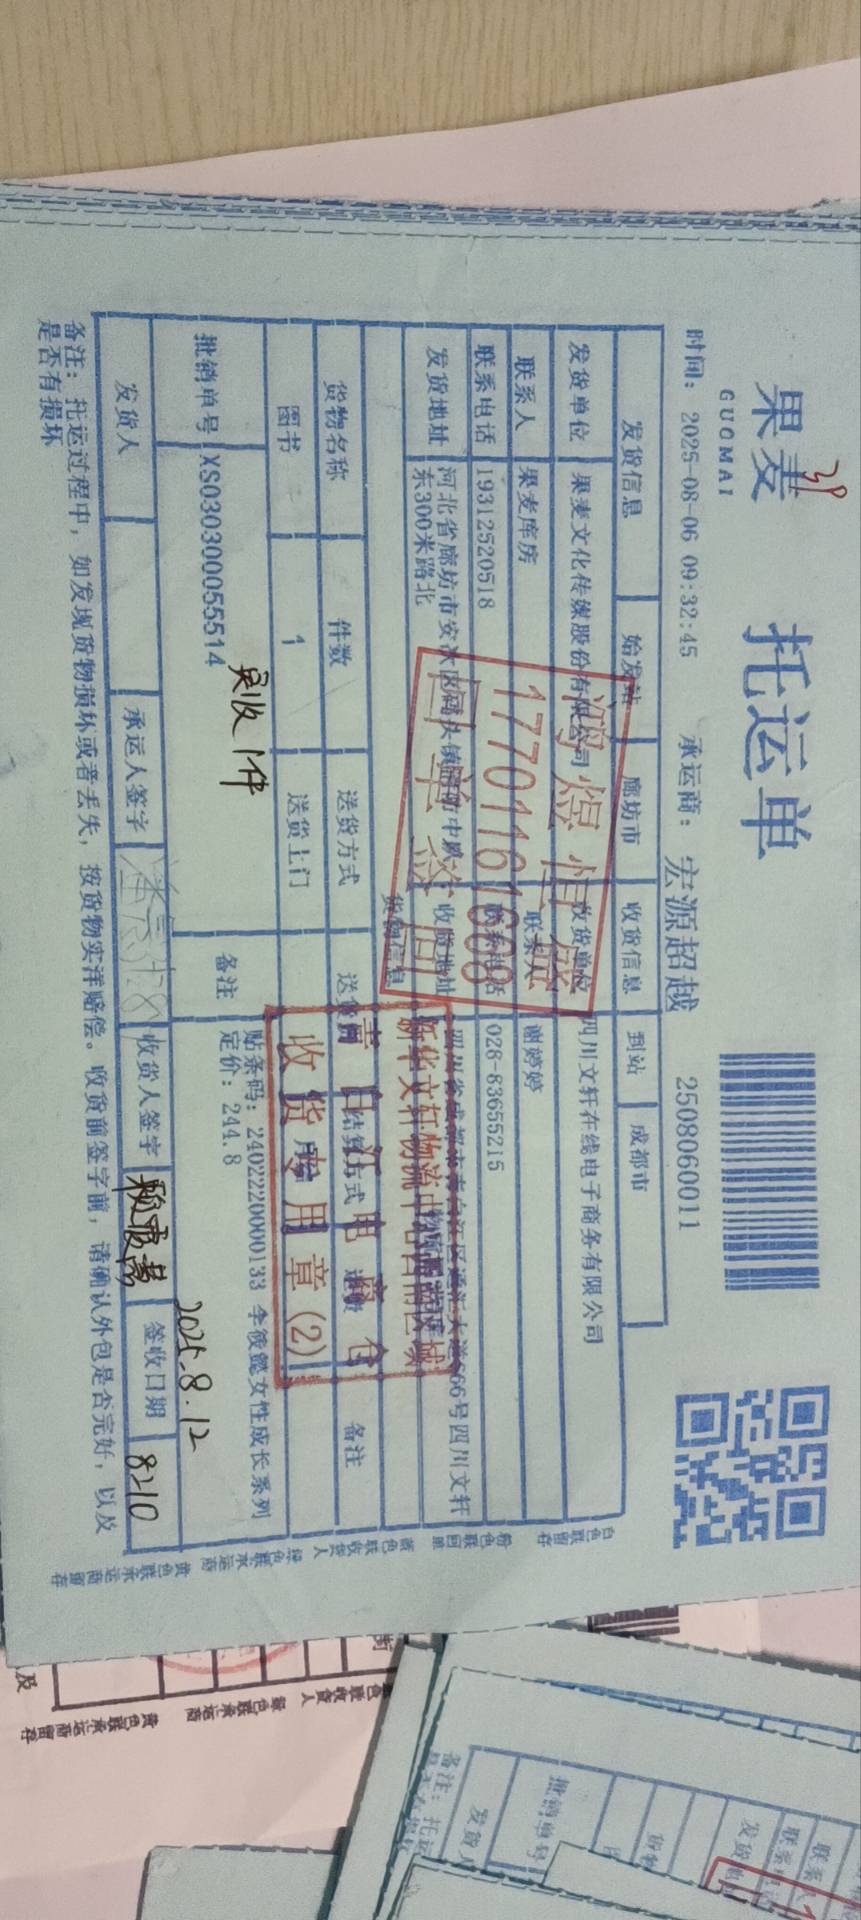 果麦
GUOMAI
托运单
时间：2025-08-06 09:32:45 承运商：宏源超越 2508060011
发货信息 始发站 廊坊市 收货信息 到站 成都市
发货单位 果麦文化传媒股份有限公司 收货单位 四川文轩在线电子商务有限公司
联系人 果麦库房 联系人 谢婷婷
联系电话 19312520518 联系电话 028-83655215
发货地址 河北省廊坊市安次区码头镇 东300米路北 收货地址 四川省成都市青白江区通汇大道666号四川文轩
货物信息
货物名称 件数 送货方式 送货 结算方式 备注
图书 1 送货上门
批销单号 XS030300055514 备注 贴条码：2402220000133 李筱懿女性成长系列
定价：244.8
实收1件
2025.8.12
发货人 承运人签字 收货人签字 签收日期 8210
备注：托运过程中，如发现货物损坏或者丢失，按货物实洋赔偿。收货前签字前，请确认外包是否完好，以及
是否有损坏
17701161669
回单盖回
新华文轩物流
青白江电商仓
收货专用章(2)
白色联留存
粉色联回单
蓝色联收货人
绿色联承运商
黄色联承运商留存
色联收货人
绿色联承运商
黄色联承运商留存
及
备注：托运
发货人
批销单号
发货地
联系
联系